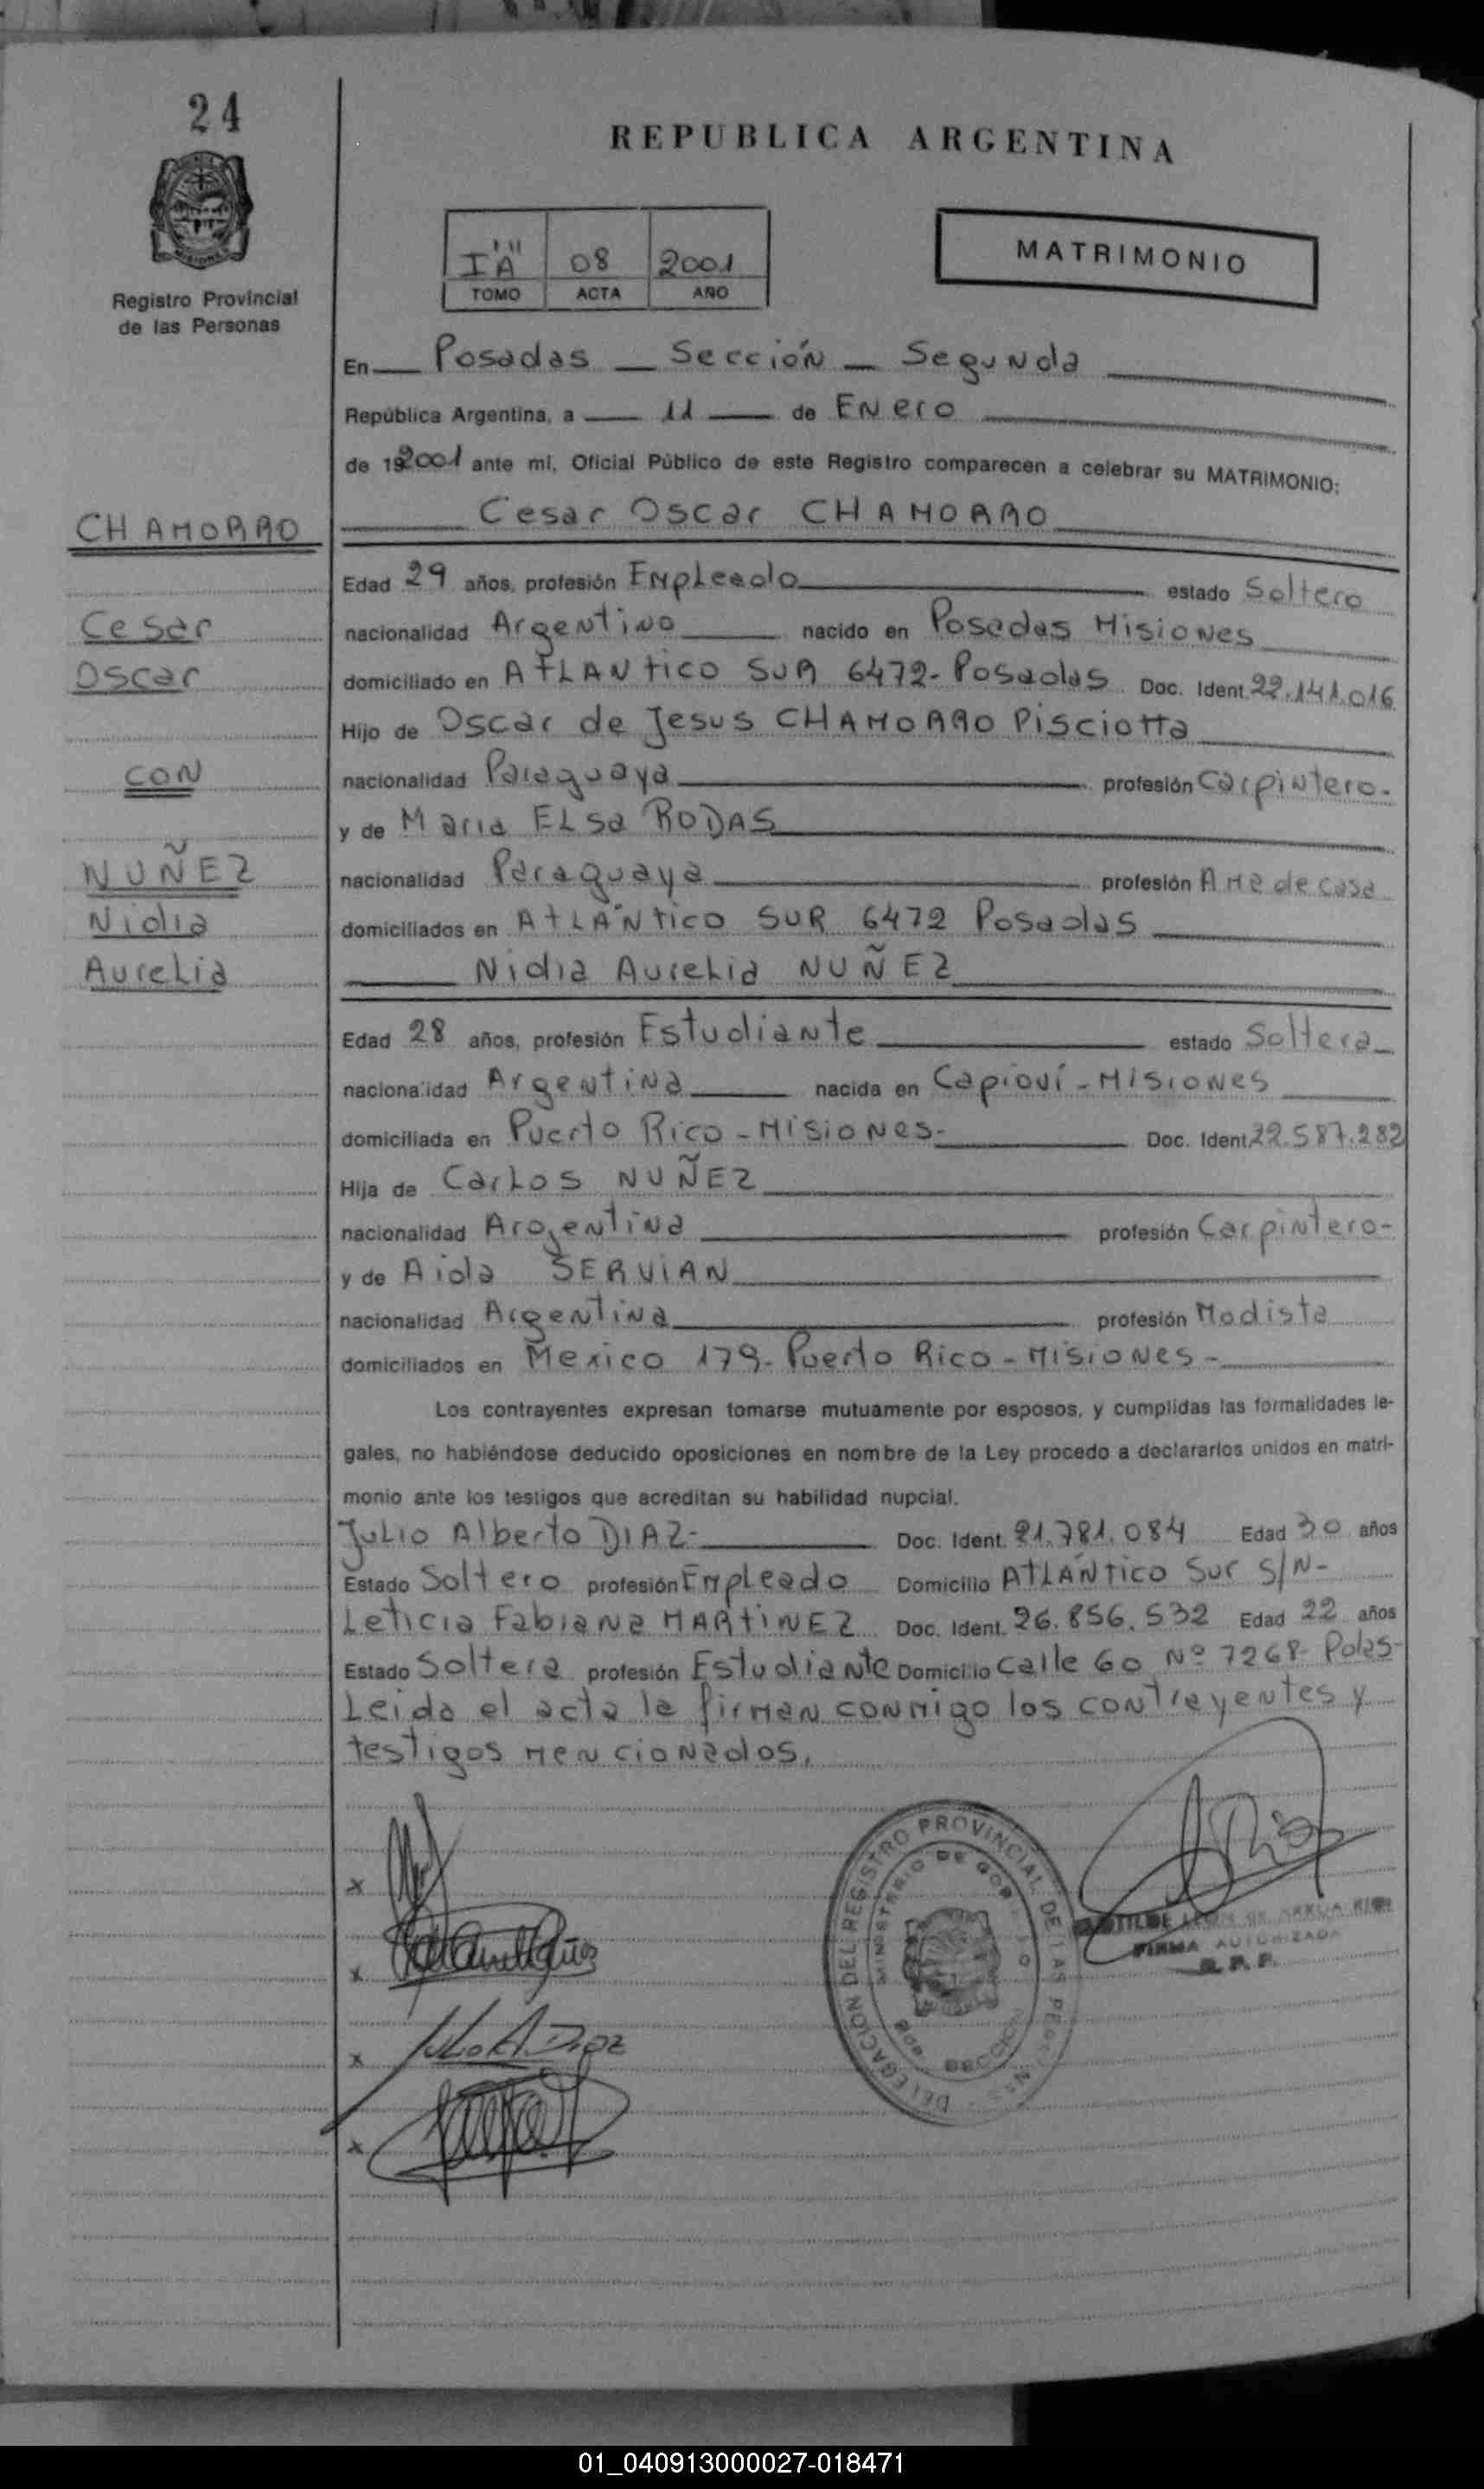 24
REPUBLICA ARGENTINA
Registro Provincial
de las Personas
I "A" 08 2001
TOMO ACTA AÑO
MATRIMONIO
En Posadas Sección Segunda
República Argentina, a 11 de Enero
de 192001 ante mí, Oficial Público de este Registro comparecen a celebrar su MATRIMONIO:
CHAMORRO
Cesar Oscar CHAMORRO
Edad 29 años, profesión Empleado estado Soltero
Cesar
nacionalidad Argentino nacido en Posadas Misiones
Oscar
domiciliado en ATLANtico SUR 6472- Posadas Doc. Ident. 22.141.016
Hijo de Oscar de Jesus CHAMORRO Pisciotta
CON
nacionalidad Paraguaya profesión Carpintero.
y de Maria ELsa RODAS
NUÑEZ
nacionalidad Paraguaya profesión Ama de casa
Nidia
domiciliados en AtLÁNtico SUR 6472 Posadas
Aurelia
Nidia Aurelia NUÑEZ
Edad 28 años, profesión Estudiante estado Soltera
nacionalidad Argentina nacida en Capioví - Misiones
domiciliada en Puerto Rico - Misiones- Doc. Ident. 22.587.282
Hija de Carlos NUÑEZ
nacionalidad Argentina profesión Carpintero-
y de Aida SERVIAN
nacionalidad Argentina profesión Modista
domiciliados en Mexico 179- Puerto Rico - Misiones -
Los contrayentes expresan tomarse mutuamente por esposos, y cumplidas las formalidades le-
gales, no habiéndose deducido oposiciones en nombre de la Ley procedo a declararlos unidos en matri-
monio ante los testigos que acreditan su habilidad nupcial.
Julio Alberto DIAZ- Doc. Ident. 21.781.084 Edad 30 años
Estado Soltero profesión Empleado Domicilio ATLÁNTico Sur S/N-
Leticia Fabiana MARTINEZ Doc. Ident. 26.856.532 Edad 22 años
Estado Soltera profesión Estudiante Domicilio Calle 60 Nº 7268- Pdas-
Leida el acta la firman conmigo los contrayentes y
testigos mencionados.
x
x
x Julio A. Diaz
x
DELEGACION DEL REGISTRO PROVINCIAL DE LAS PERSONAS
MINISTERIO DE GOBIERNO
SECCION
FIRMA AUTORIZADA
R. P. P.
01_040913000027-018471